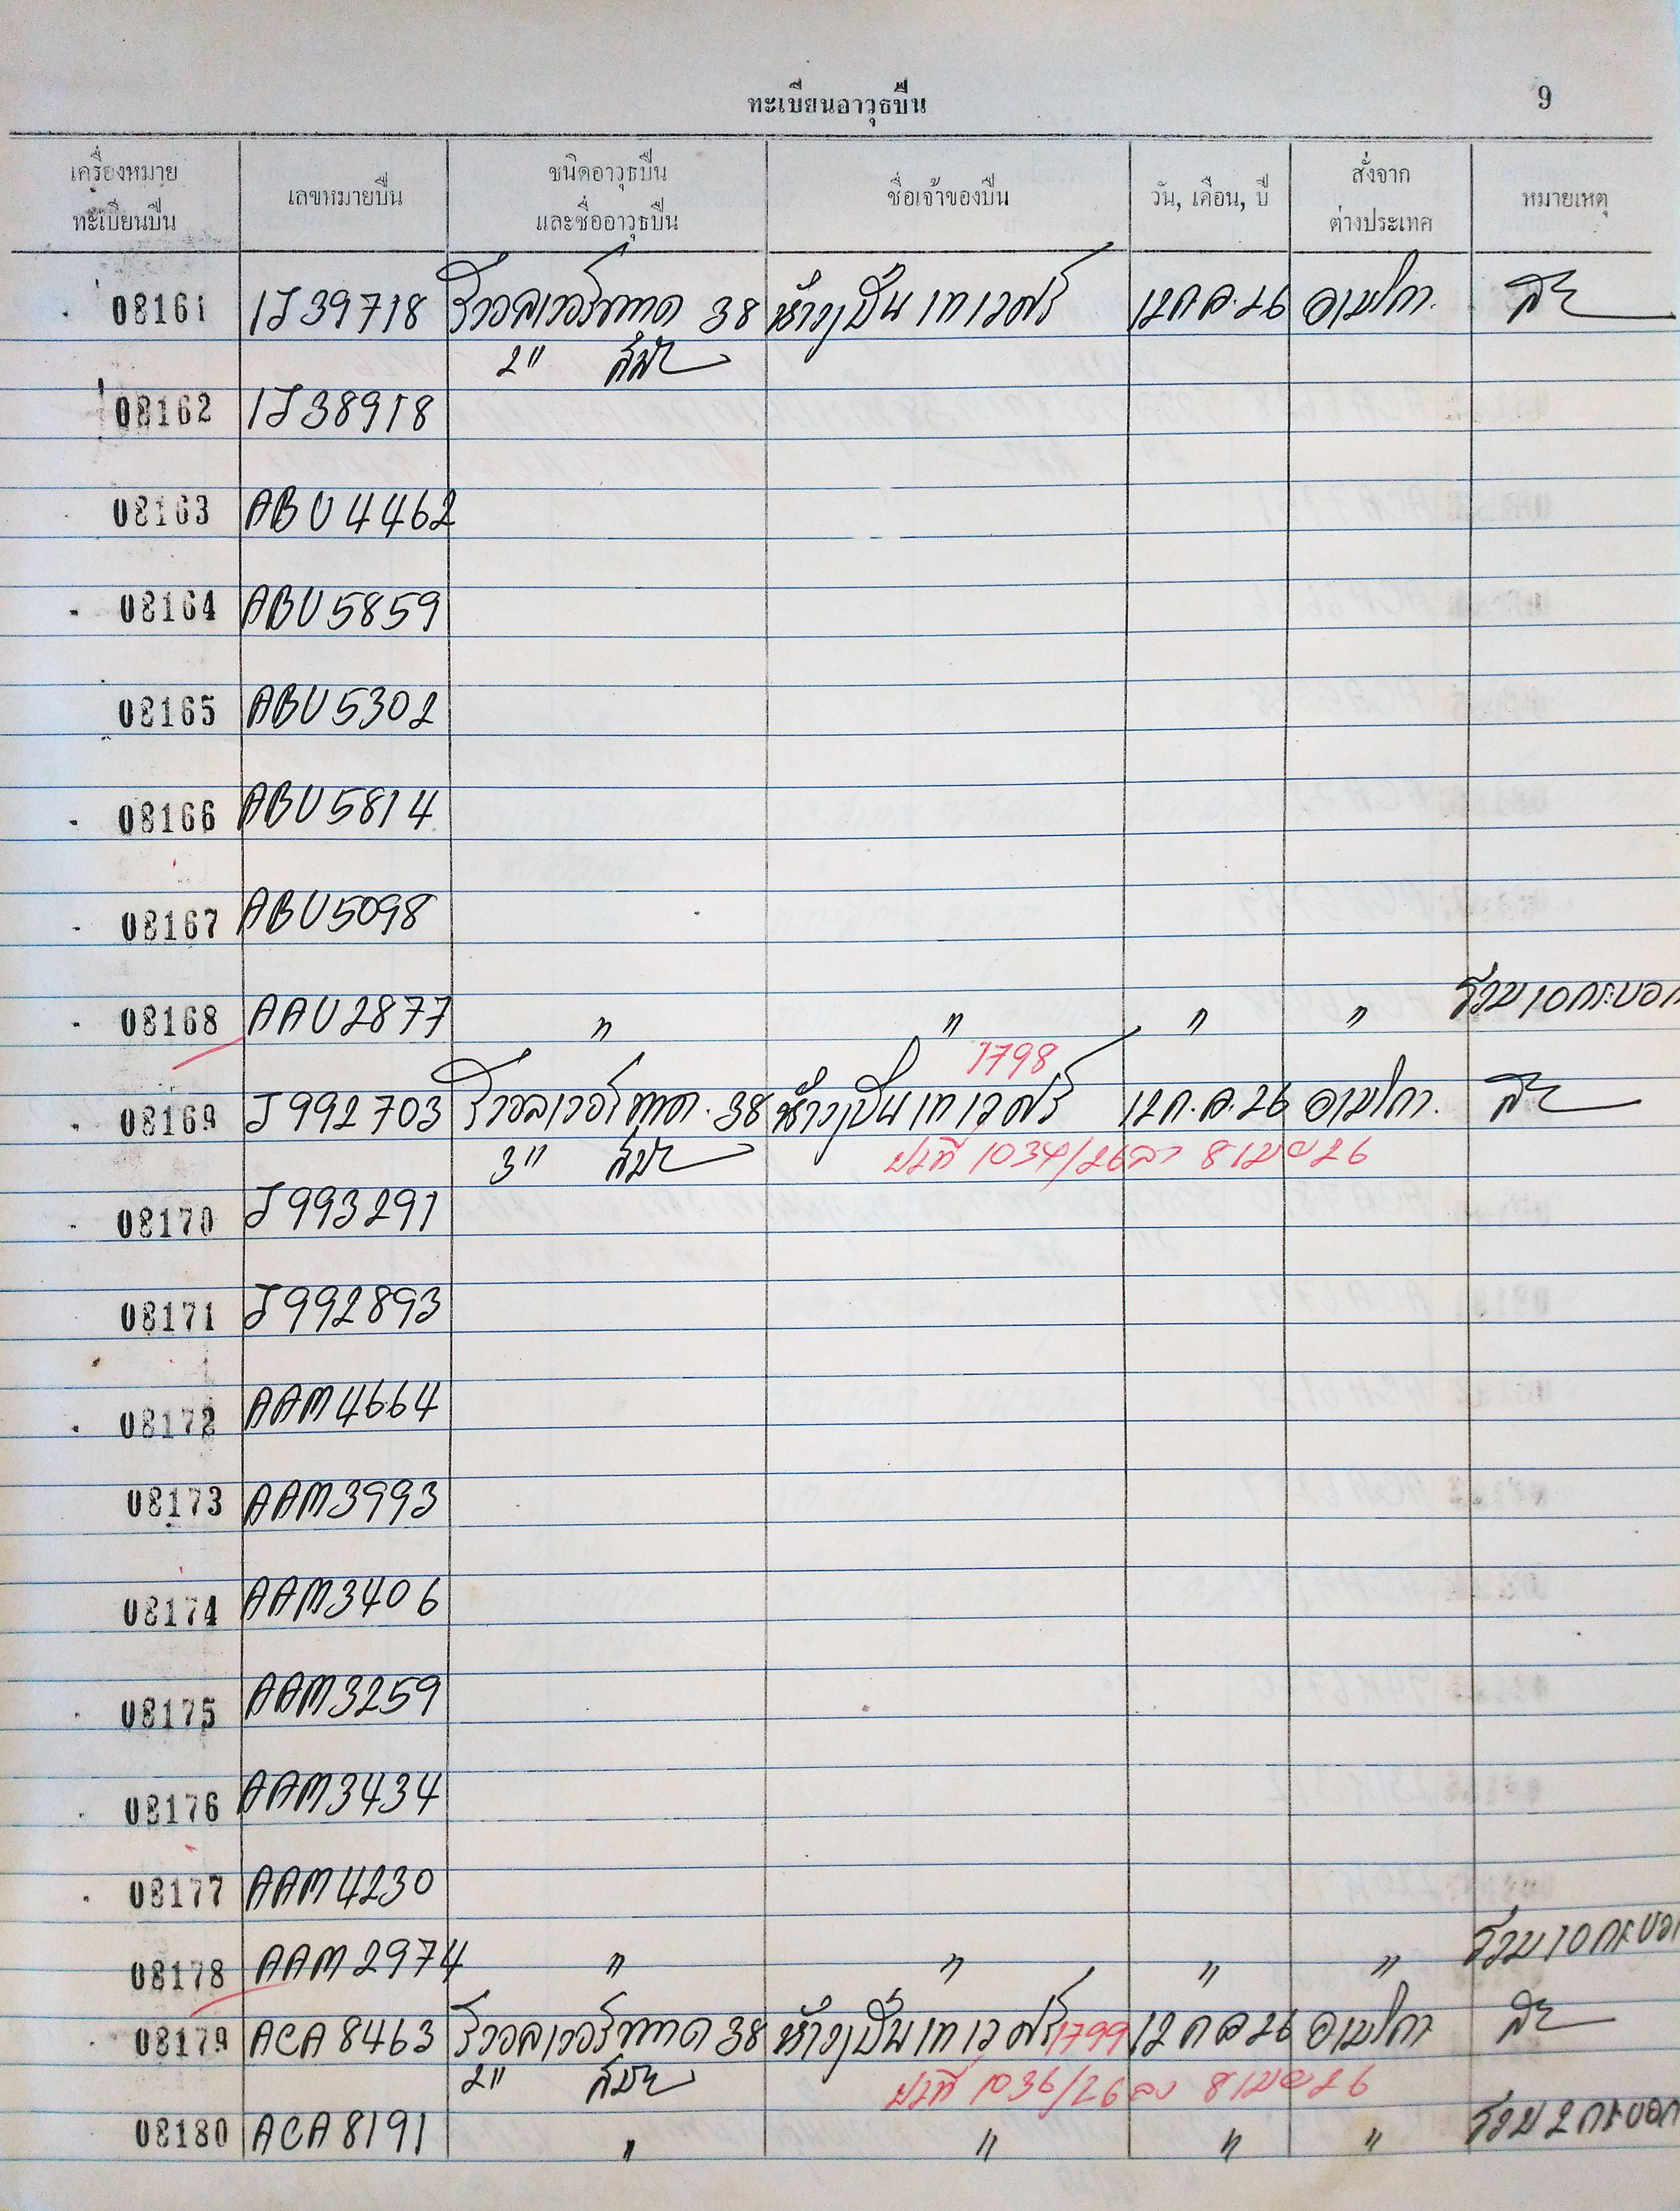 ทะเบียนอาวุธปืน 9
เครื่องหมาย
ทะเบียนปืน
เลขหมายปืน
ชนิดอาวุธปืน
และชื่ออาวุธปืน
ชื่อเจ้าของปืน
วัน, เดือน, ปี
สั่งจาก
ต่างประเทศ
หมายเหตุ
08161 1J39718 รีวอลเวอร์ขนาด 38 ห้างปืน เทเวศร์ 12 ก.ค. 26 อเมริกา.
2"
08162 1J38918
08163 ABU4462
08164 ABU5859
08165 ABU5302
08166 ABU5814
08167 ABU5098
08168 AAU2877 " " " " รวม 10 กระบอก
1798
08169 J992703 รีวอลเวอร์ขนาด. 38 ห้างปืน เทเวศร์ 12 ก.ค. 26 อเมริกา.
3" ป.ที่ 1034/26 ลว 8 เมย 26
08170 J993291
08171 J992893
08172 AAM4664
08173 AAM3993
08174 AAM3406
08175 AAM3259
08176 AAM3434
08177 AAM4230
08178 AAM2974 " " " " รวม 10 กระบอก
08179 ACA8463 รีวอลเวอร์ขนาด 38 ห้างปืน เทเวศร์ 1799 12 ก ค 26 อเมริกา
2" ป.ที่ 1036/26 ลว 8 เมย 26
08180 ACA8191 " " " " รวม 2 กระบอก